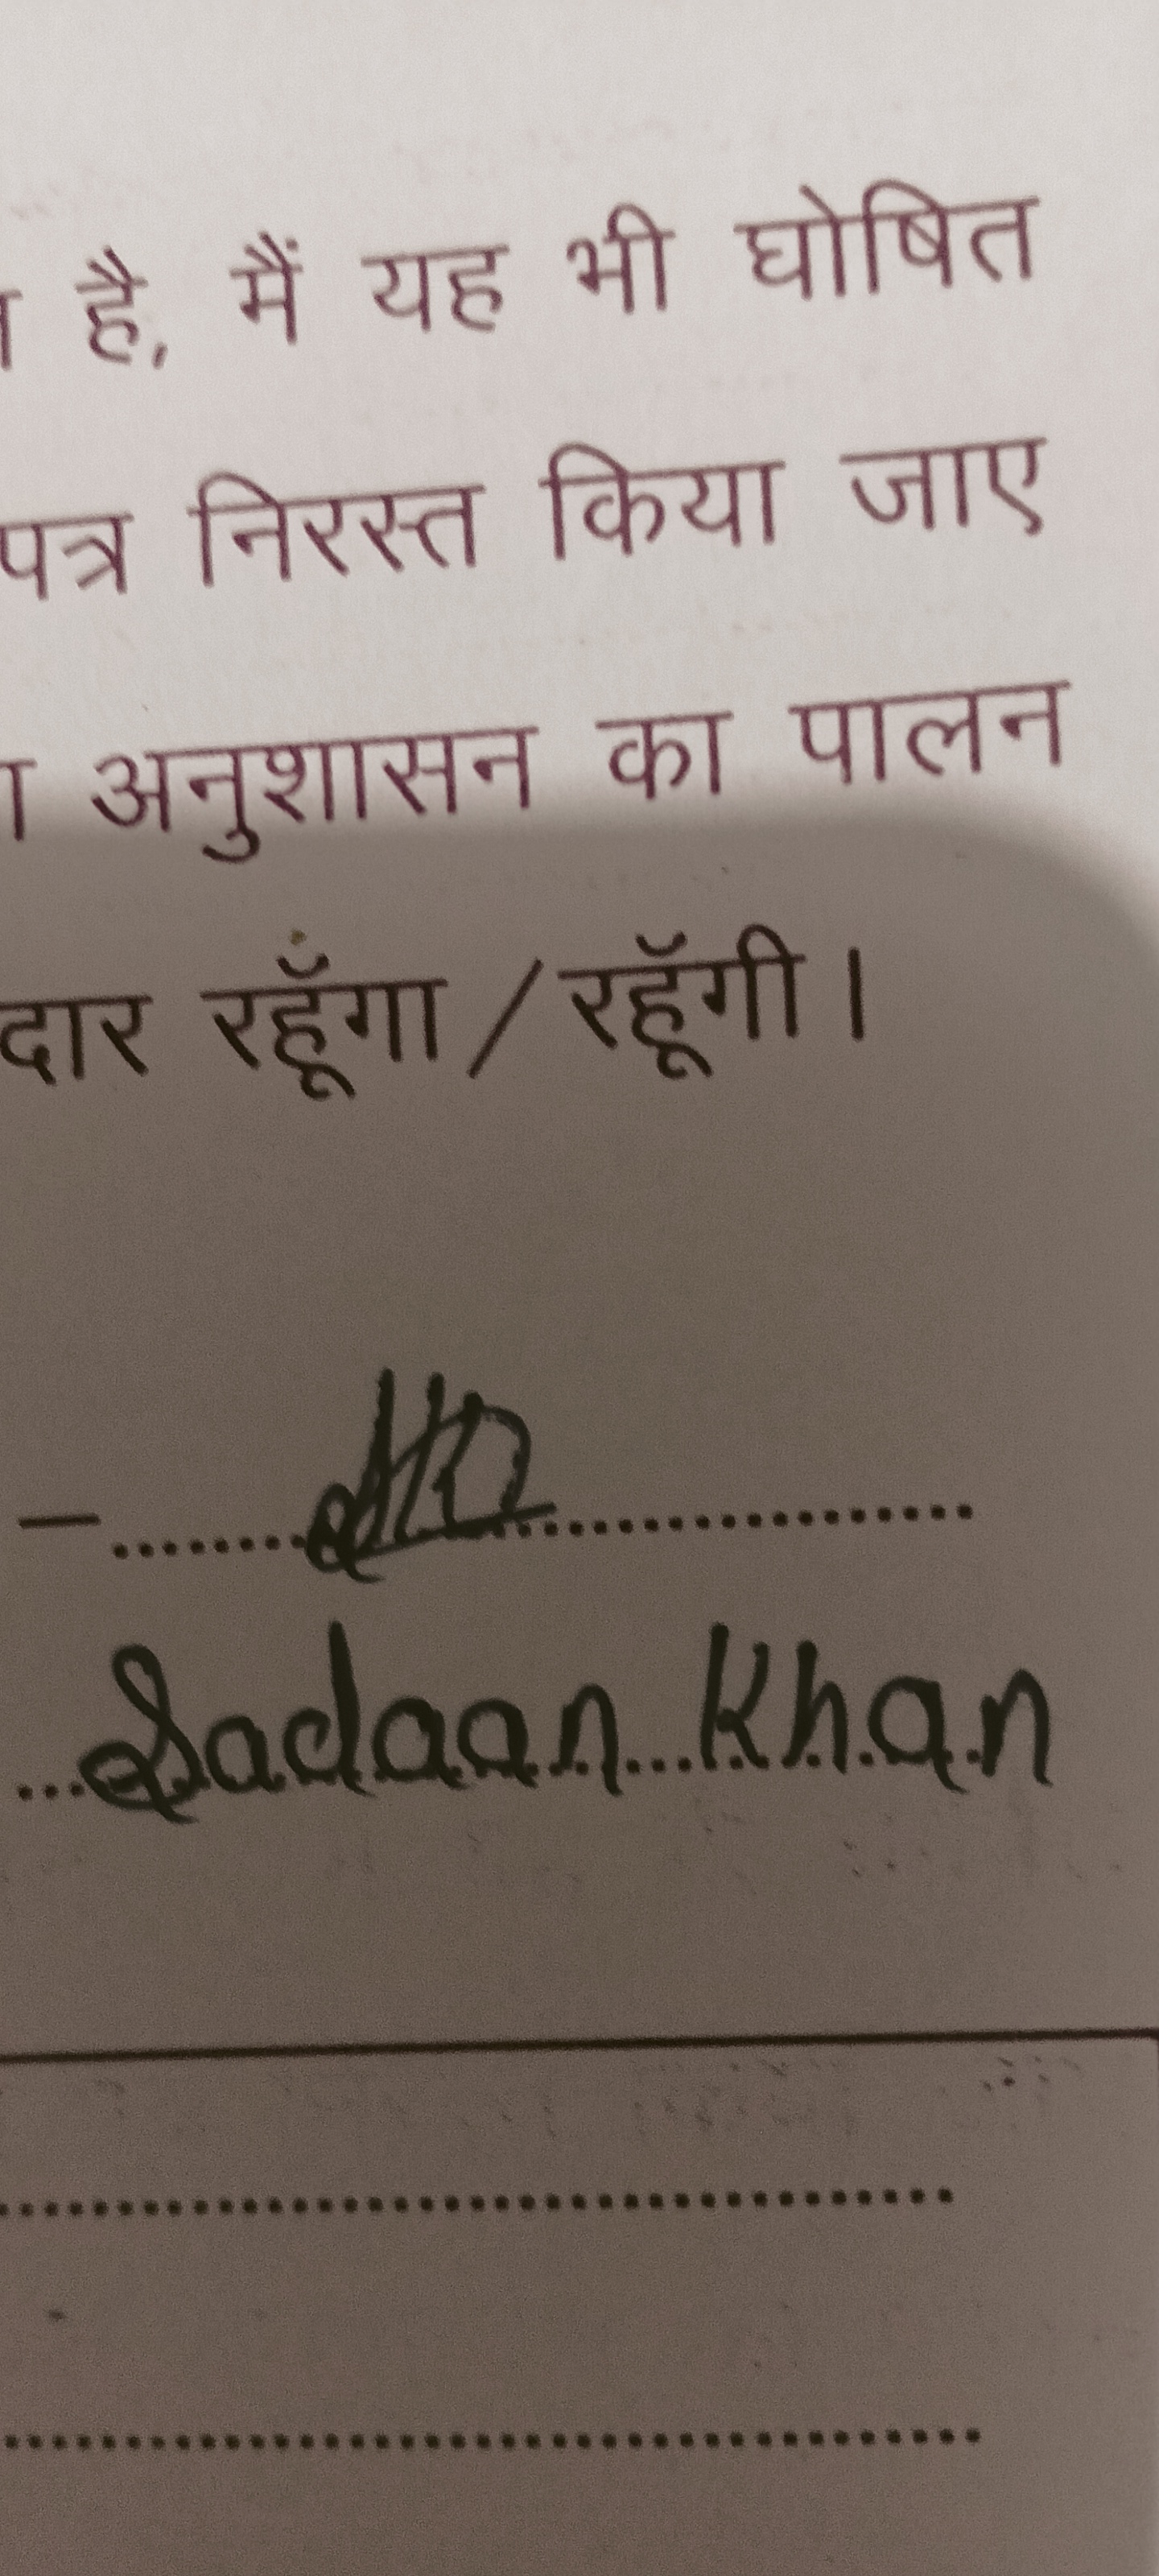 है, मैं यह भी घोषित
पत्र निरस्त किया जाए
अनुशासन का पालन
दार रहूँगा / रहूँगी।
Sadaan Khan